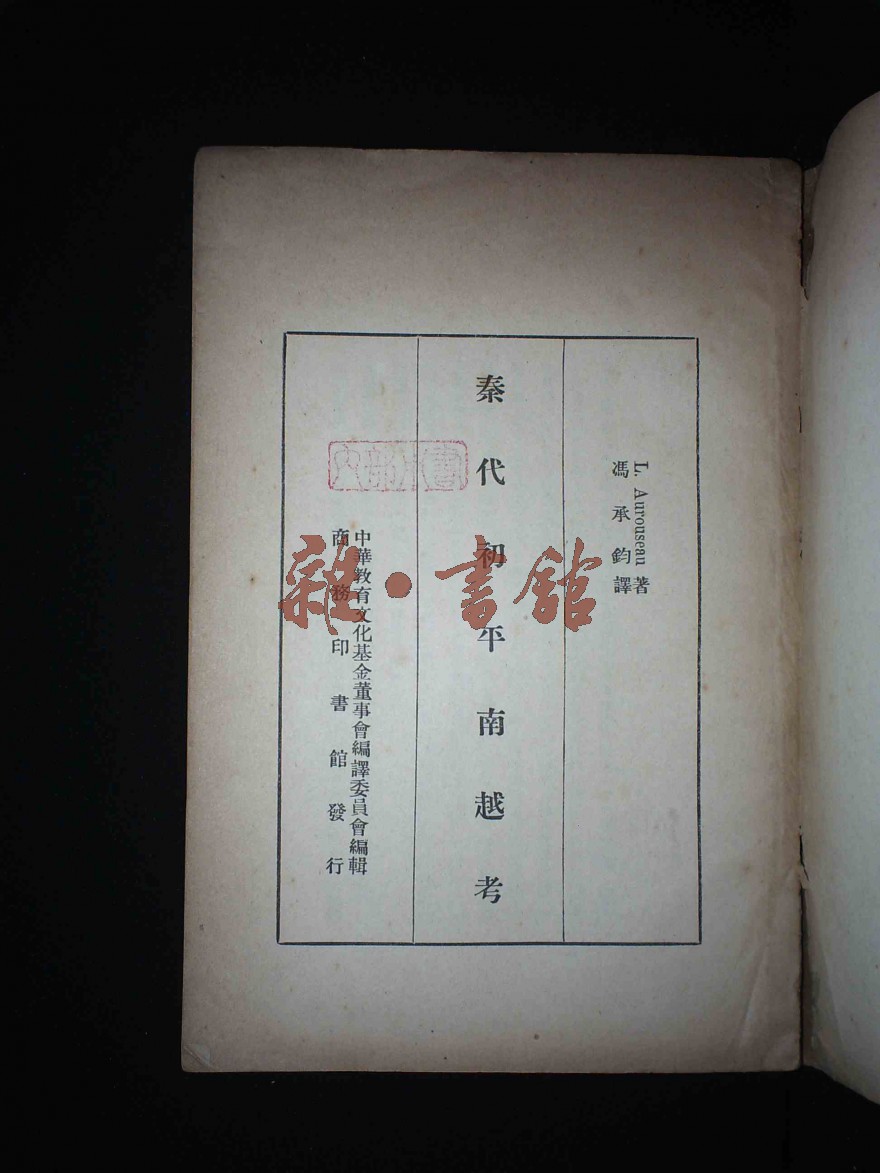 L. Aurouseau 著
馮承鈞譯
秦代初平南越考
中華教育文化基金董事會編譯委員會編輯
商務印書館發行
雜·書館